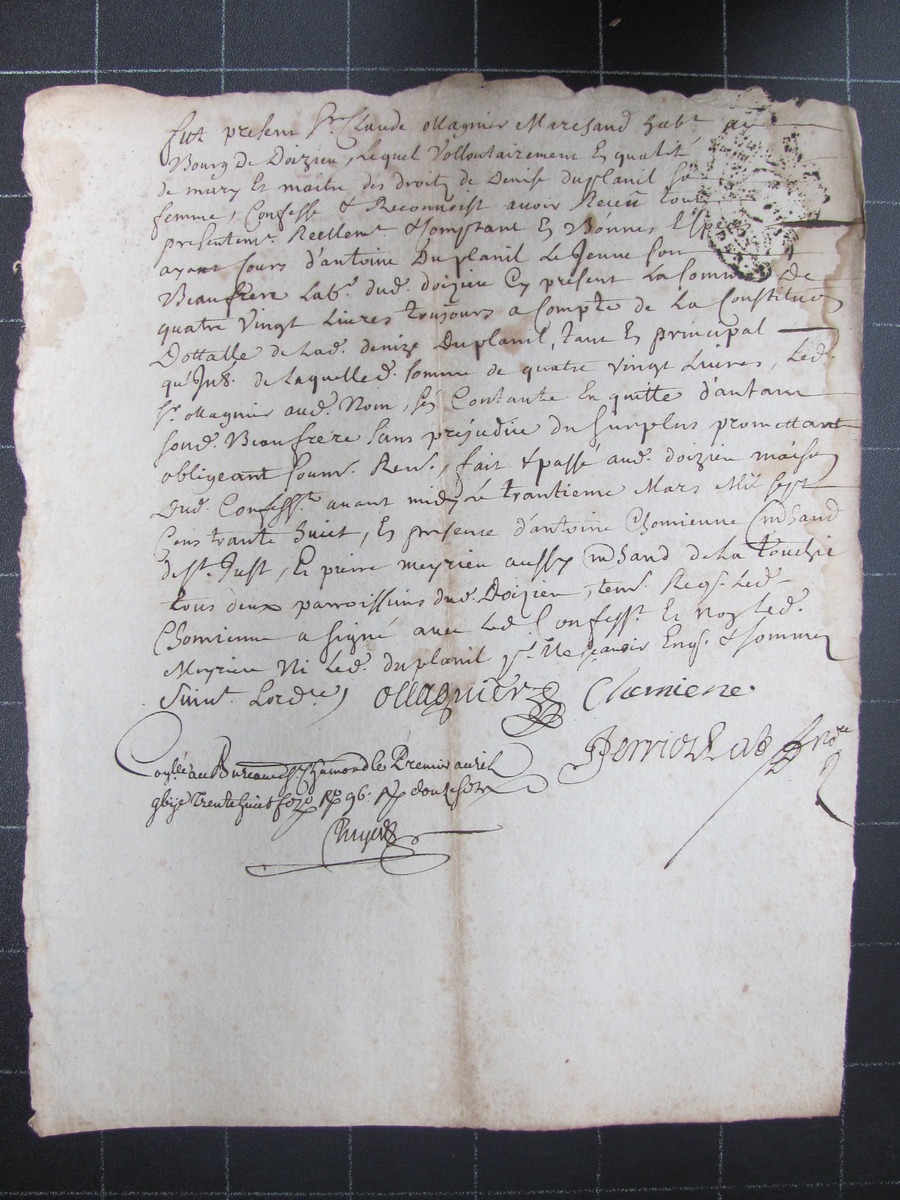 fut present Sr. Claude ollagnier Marchand habt. au
Bourg de Doizieu, lequel vollontairement En qualité
de mary Et maitre des droits de Denise duplanil sa
femme, Confesse & Reconnoist avoir Receu tout
presentemt. Reellemt. & Comptant En Bonnes Espèces
ayant Cours d'antoine Duplanil Le Jeune Son
Beaufrere Labr. dud. doizieu Cy présent La Somme De
quatre Vingt Livres toujours a Compte de La Constitution
Dottalle de Lad. denize Duplanil, tant En principal
qu'Jns. de Laquelled. Somme de quatre Vingt Livres, Led.
Sr. ollagnier aud. Nom, s'en Contante En quitte d'antoine
Soud. Beaufrere Sans préjudice du Surplus promettant
obligeant Soumr. Renr., fait & passé aud. doizieu maison
Dud. Confesst. avant midy Le trantieme Mars Mil Sept
Cens trante huict, En presence d'antoine Chomienne Mchand
de St. Just, Et pierre meyrieu aussy Mchand de La
tous deux paroissiens dud. Doizieu, tem. Reqs. Led.
Chomienne a signé avec Led. Confesst. Et non Led.
Meyrieu Ni Led. duplanil pr. Ne sçavoir Enqs. & Sommez
Suivt. Lordce.
ollagnier Chomiene
Perriolat
Collé au Bureau de St. Chamond le Premier avril
trente huict fo. Ro. 96. Rx. douze sols